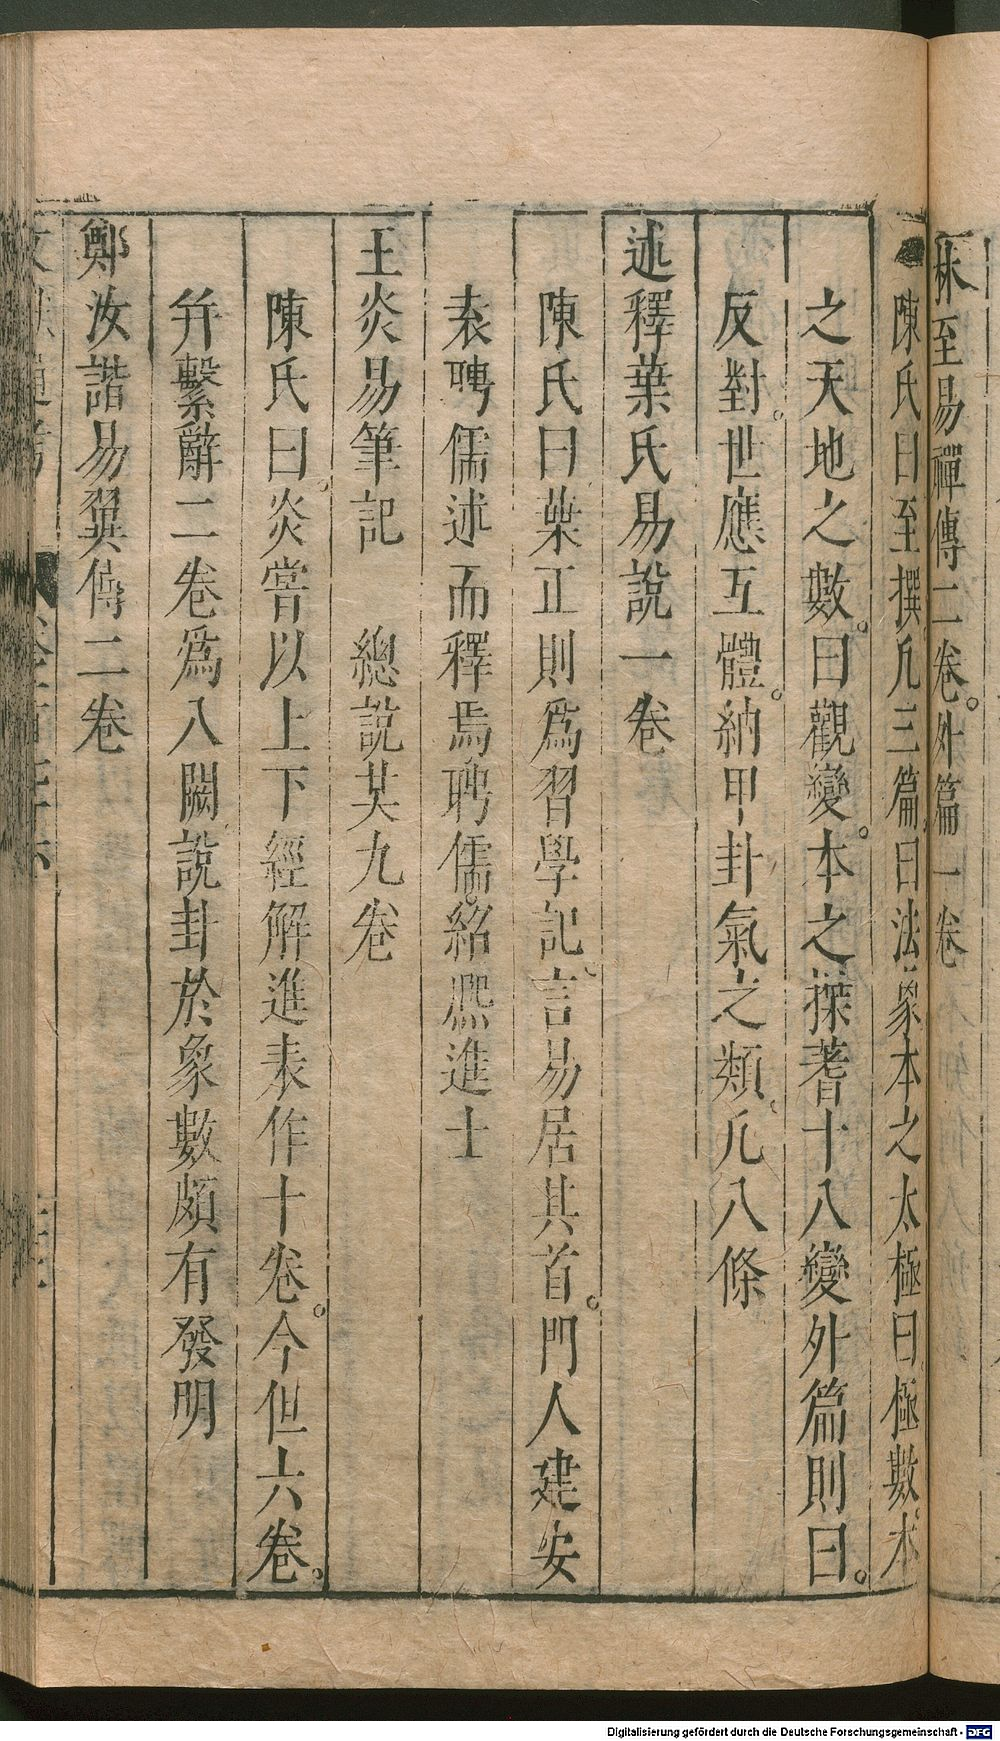 林至易禪傳二卷。外篇一卷
陳氏曰至撰凡三篇曰法象本之太極曰極數本
之天地之數。曰觀變。本之揲蓍十八變外篇則曰。
反對。世應互體。納甲卦氣之類。凡八條
述釋葉氏易說一卷
陳氏曰葉正則爲習學記。言易居其首。門人建安
袁聘儒述而釋焉。聘儒。紹熙進士
王炎易筆記　總說共九卷
陳氏曰。炎嘗以上下經解進表作十卷。今但六卷。
并繫辭二卷爲八闕說卦於象數頗有發明
鄭汝諧易翼傳二卷
Digitalisierung gefördert durch die Deutsche Forschungsgemeinschaft - DFG